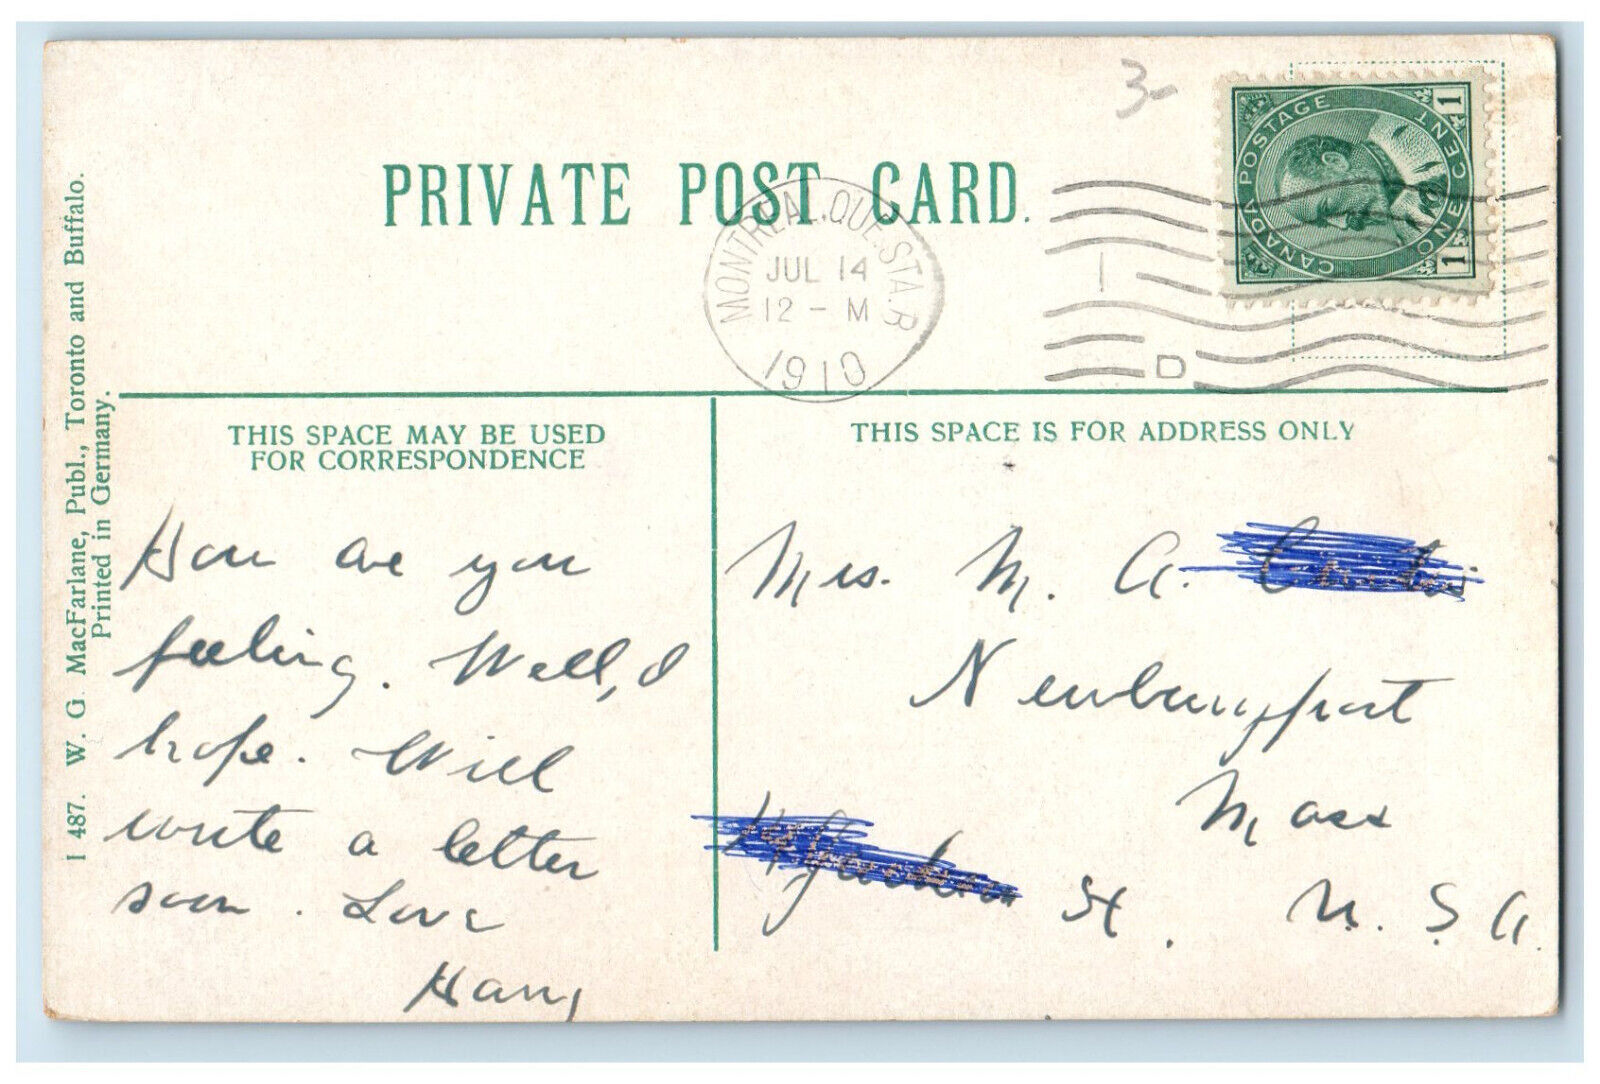 3-
PRIVATE POST CARD.
MONTREAL.QUE.STA.B
JUL 14
12 - M
1910
D
CANADA POSTAGE
ONE CENT
1 1
THIS SPACE MAY BE USED
FOR CORRESPONDENCE
THIS SPACE IS FOR ADDRESS ONLY
I 487. W. G. MacFarlane, Publ., Toronto and Buffalo.
Printed in Germany.
How are you
feeling. Well, I
hope. Will
write a letter
soon. Love
Harry
Mrs. M. A.
Newburyport
Mass
St. U. S. A.